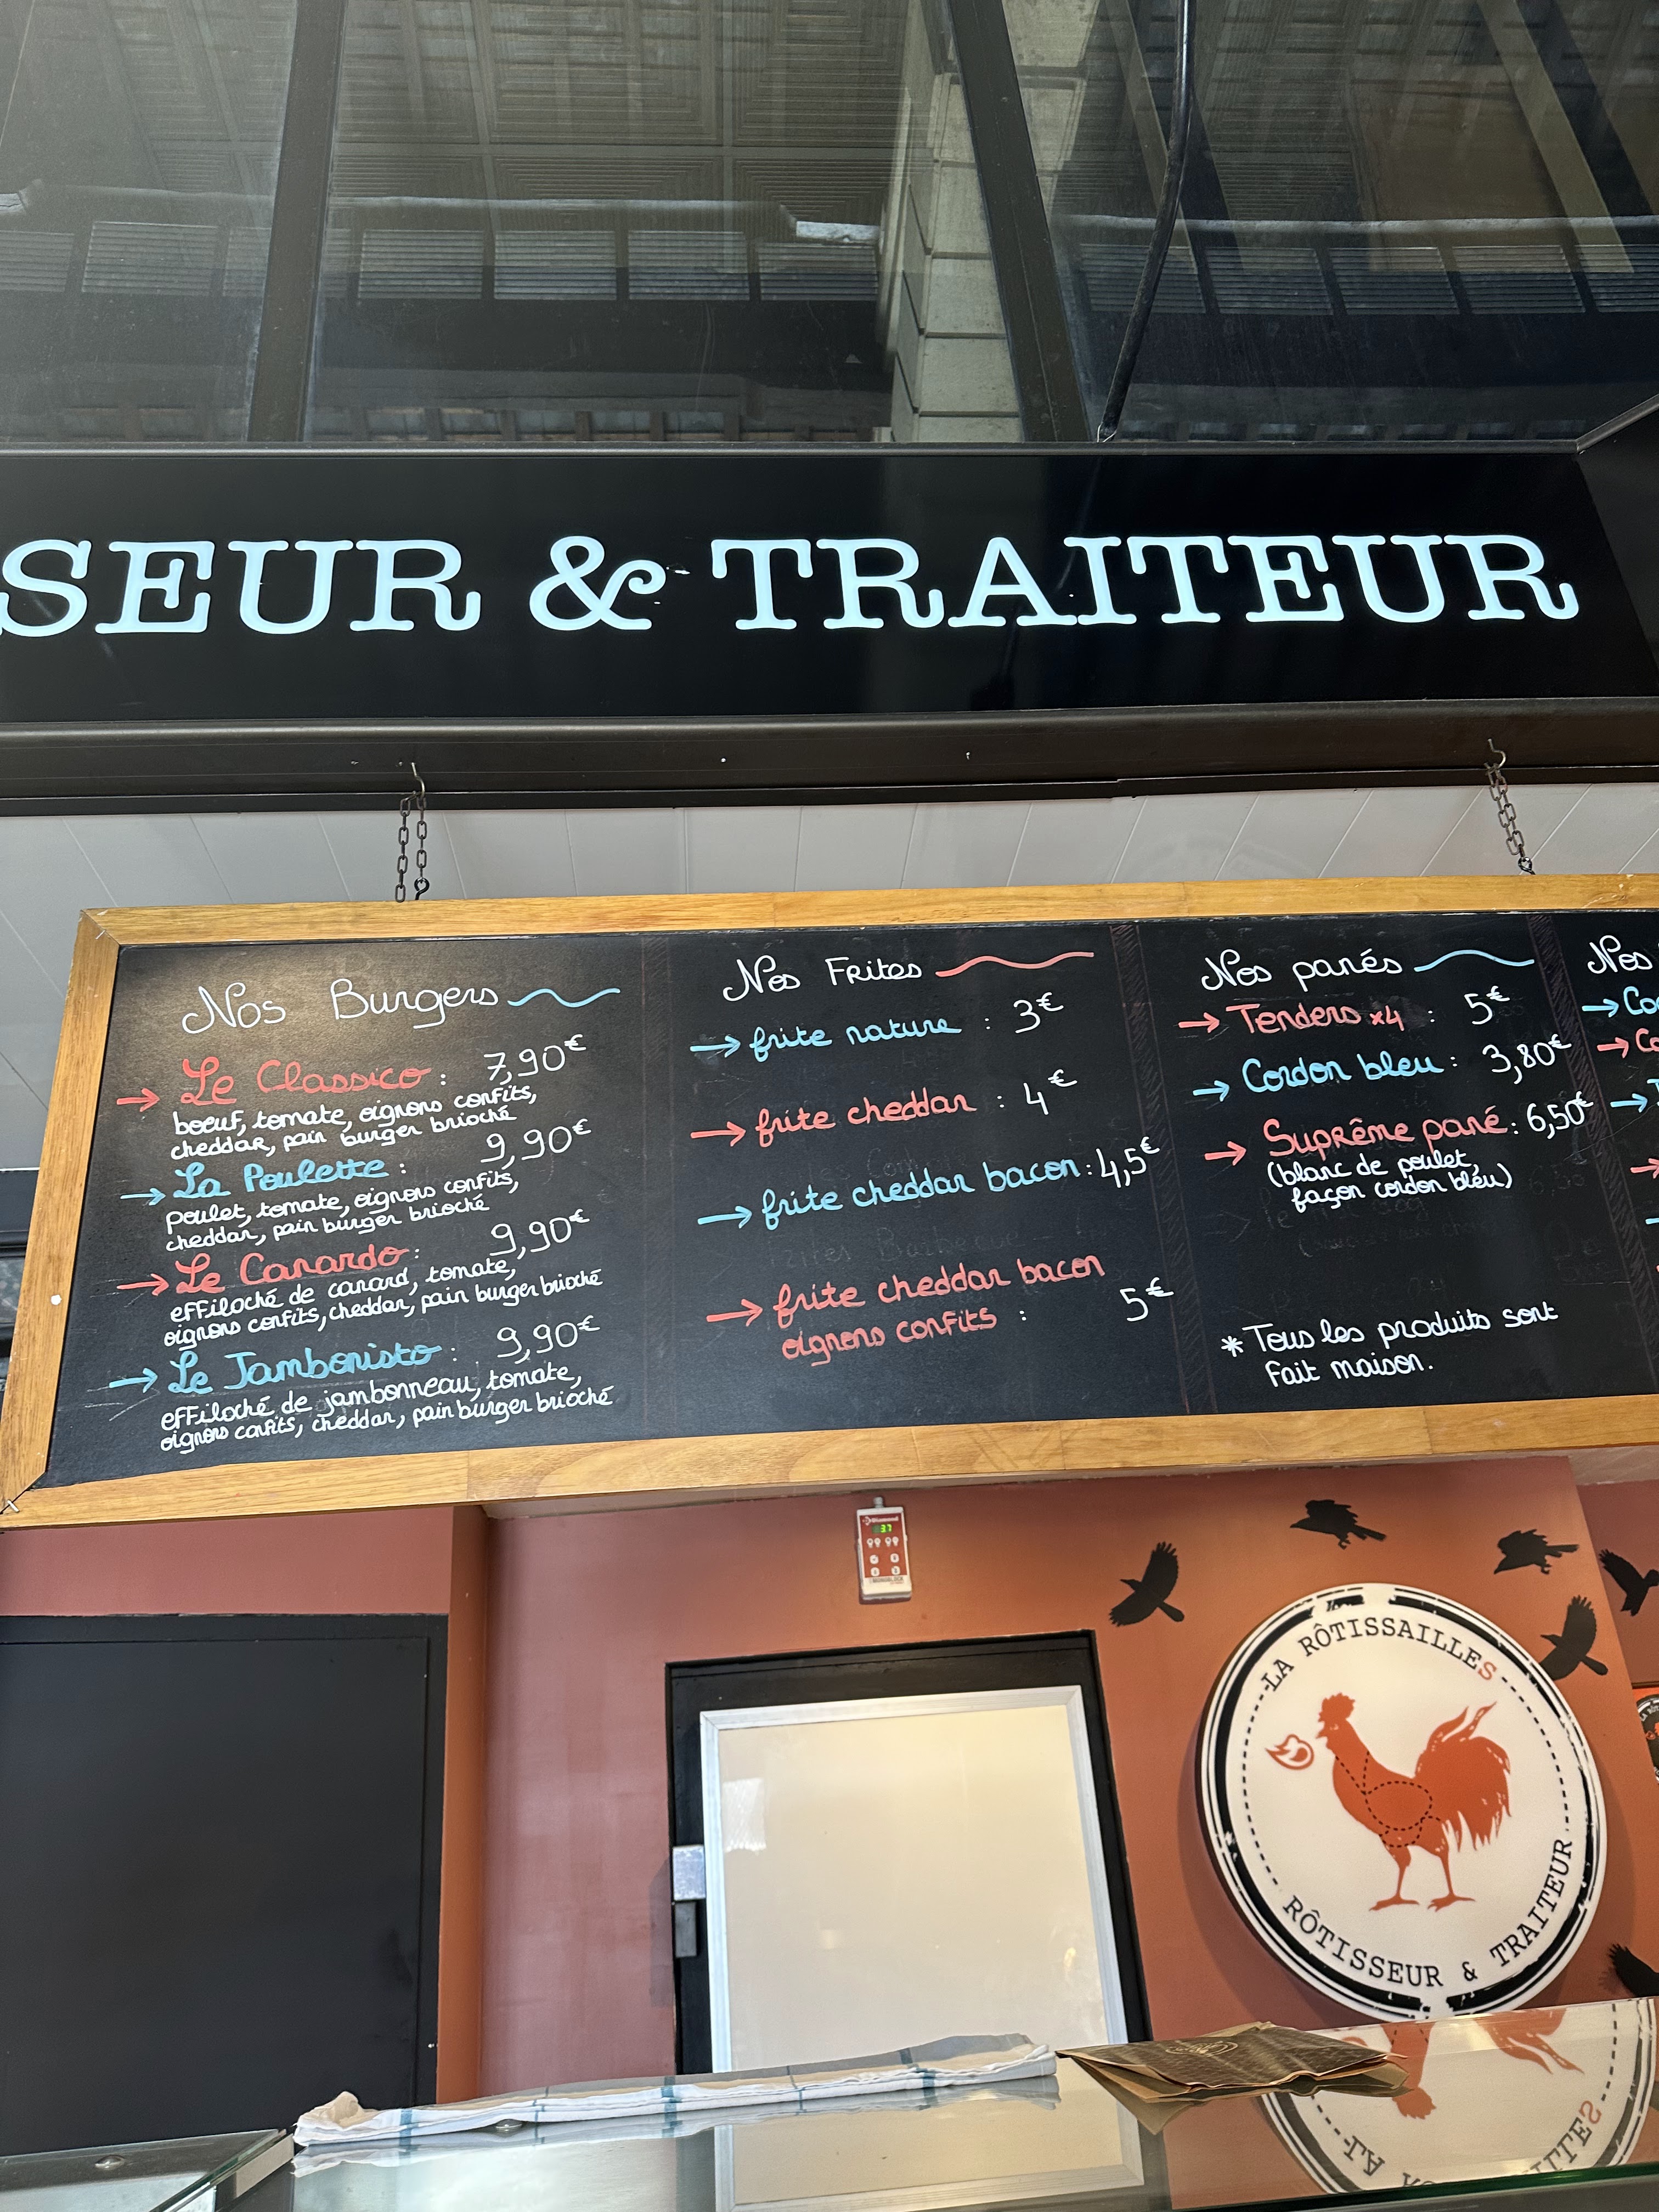 SEUR & TRAITEUR
Nos Burgers
→ Le Classico : 7,90€
boeuf, tomate, oignons confits,
cheddar, pain burger brioché
→ La Poulette : 9,90€
poulet, tomate, oignons confits,
cheddar, pain burger brioché
→ Le Canardo : 9,90€
effiloché de canard, tomate,
oignons confits, cheddar, pain burger brioché
→ Le Jambonisto : 9,90€
effiloché de jambonneau, tomate,
oignons confits, cheddar, pain burger brioché
Nos Frites
→ frite nature : 3€
→ frite cheddar : 4€
→ frite cheddar bacon : 4,5€
→ frite cheddar bacon
oignons confits : 5€
Nos panés
→ Tenders x4 : 5€
→ Cordon bleu : 3,80€
→ Suprême pané : 6,50€
(blanc de poulet,
façon cordon bleu)
* Tous les produits sont
fait maison.
Nos
LA RÔTISSAILLES
RÔTISSEUR & TRAITEUR